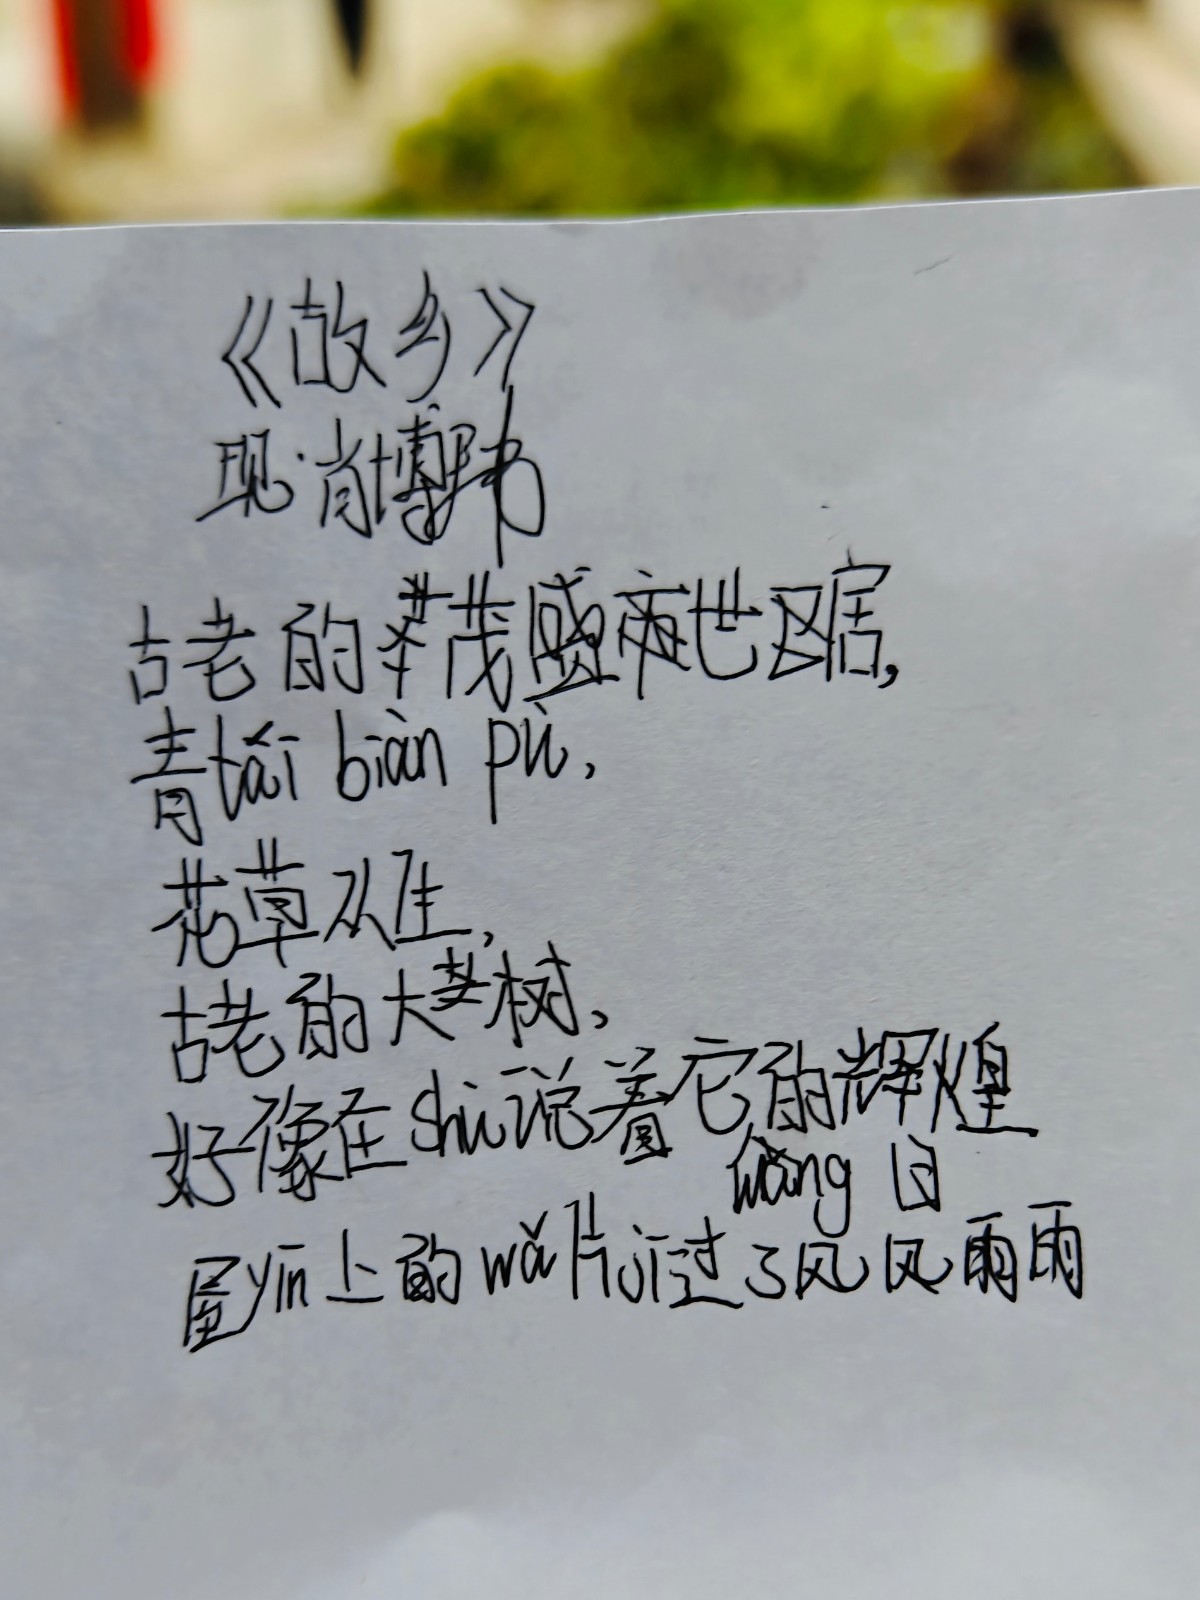 《故乡》
现·肖博
古老的茂盛世居,
青tái biàn pù,
花草从生,
古老的大树,
好像在shù说着它的辉煌
wǎng日
屋yín上的wǎ片jì过了风风雨雨